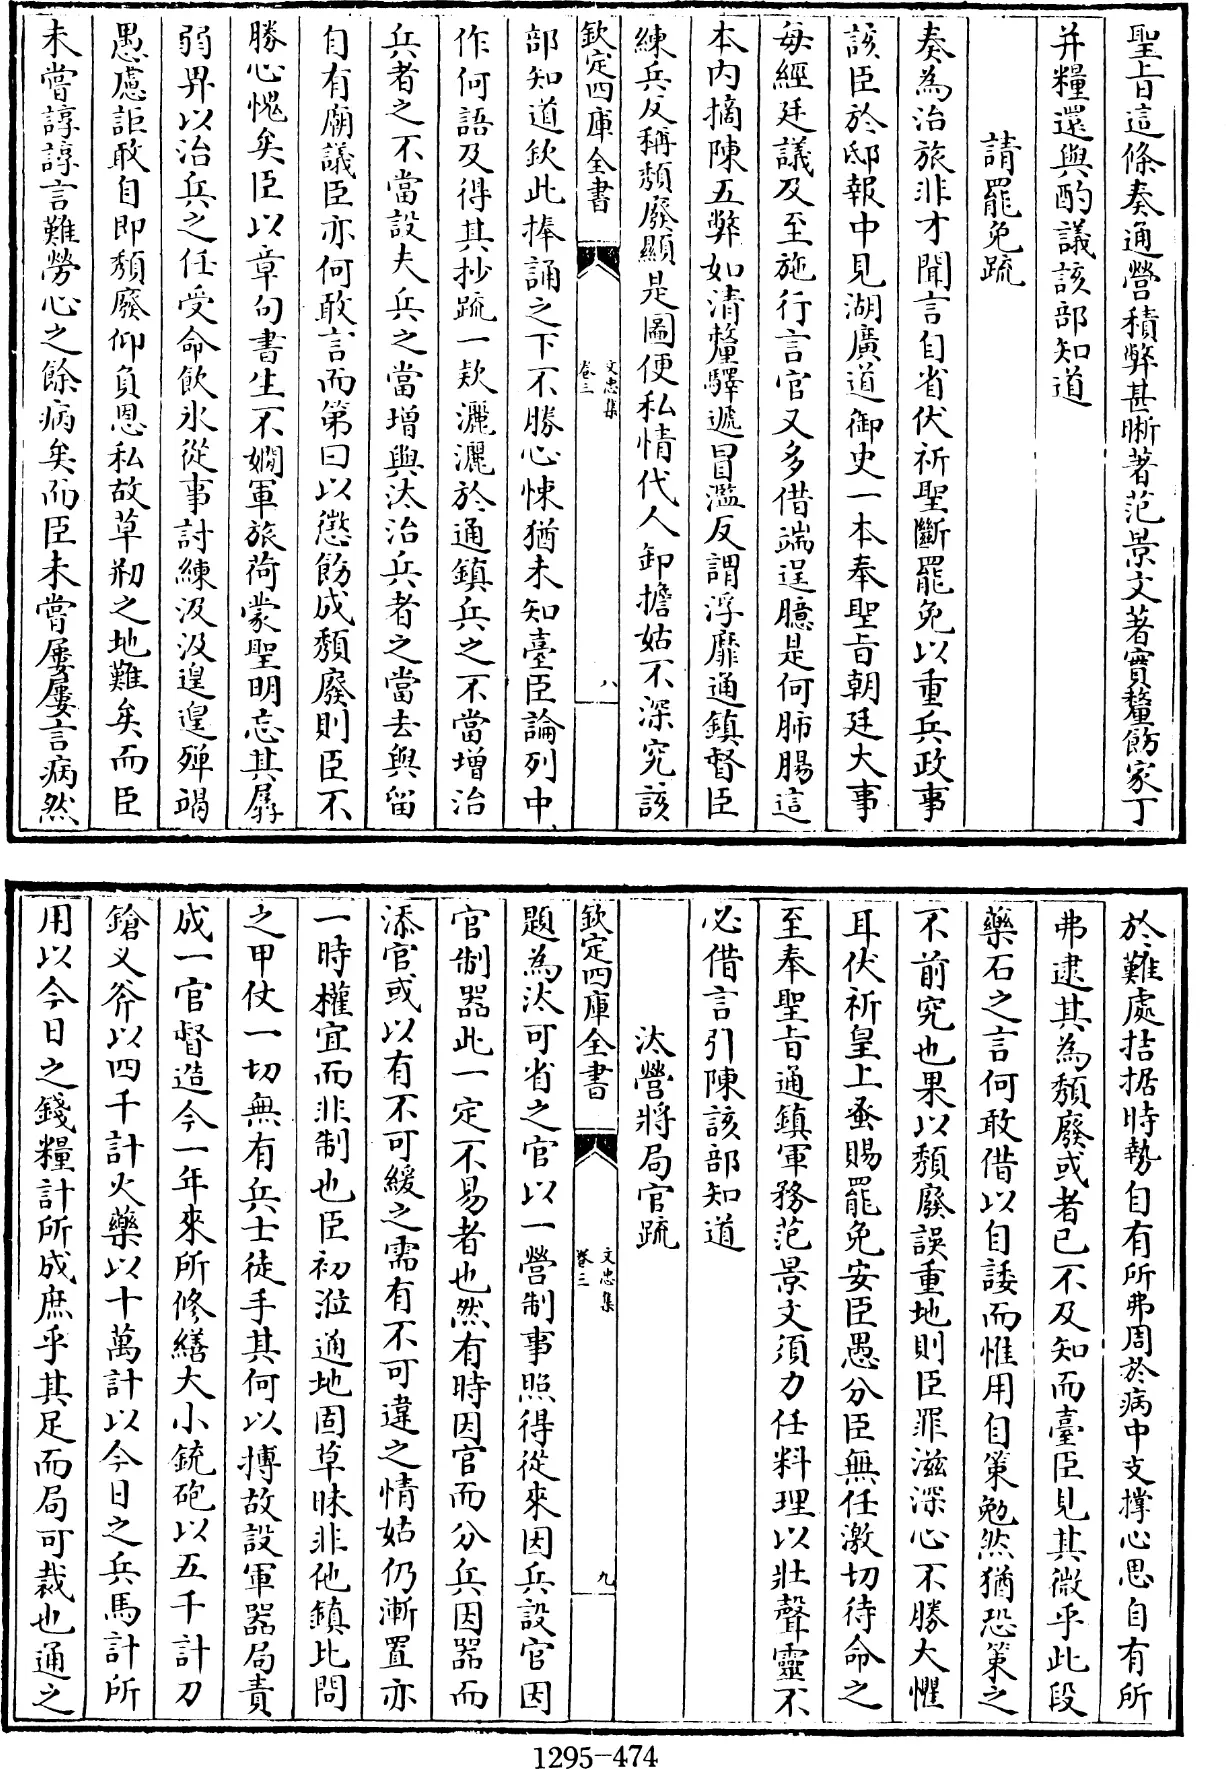 聖旨這條奏通營積弊甚晣著范景文著實釐飭家丁
并糧還與酌議該部知道
請罷免疏
奏為治旅非才聞言自省伏祈聖斷罷免以重兵政事
該臣於邸報中見湖廣道御史一本奉聖旨朝廷大事
每經廷議及至施行言官又多借端逞臆是何肺腸這
本內摘陳五弊如清釐驛遞冒濫反謂浮靡通鎮督臣
練兵反稱頹廢顯是圖便私情代人卸擔姑不深究該
欽定四庫全書
文忠集
卷三
八
部知道欽此捧誦之下不勝心悚猶未知臺臣論列中
作何語及得其抄疏一欵灑灑於通鎮兵之不當增治
兵者之不當設夫兵之當增與汰治兵者之當去與留
自有廟議臣亦何敢言而第曰以懲飭成頹廢則臣不
勝心愧矣臣以章句書生不嫺軍旅荷蒙聖明忘其孱
弱畀以治兵之任受命飲氷從事討練汲汲遑遑殫竭
愚慮詎敢自即頹廢仰負恩私故草刱之地難矣而臣
未嘗諄諄言難勞心之餘病矣而臣未嘗屢屢言病然
於難處拮据時勢自有所弗周於病中支撑心思自有所
弗逮其為頹廢或者已不及知而臺臣見其微乎此段
藥石之言何敢借以自諉而惟用自策勉然猶恐策之
不前究也果以頹廢誤重地則臣罪滋深心不勝大懼
耳伏祈皇上蚤賜罷免安臣愚分臣無任激切待命之
至奉聖旨通鎮軍務范景文須力任料理以壯聲靈不
必借言引陳該部知道
汰營將局官疏
欽定四庫全書
文忠集
卷三
九
題為汰可省之官以一營制事照得從來因兵設官因
官制器此一定不易者也然有時因官而分兵因器而
添官或以有不可緩之需有不可違之情姑仍漸置亦
一時權宜而非制也臣初涖通地固草昧非他鎮比問
之甲仗一切無有兵士徒手其何以搏故設軍器局責
成一官督造今一年來所修繕大小銃砲以五千計刀
鎗义斧以四千計火藥以十萬計以今日之兵馬計所
用以今日之錢糧計所成庶乎其足而局可裁也通之
1295-474